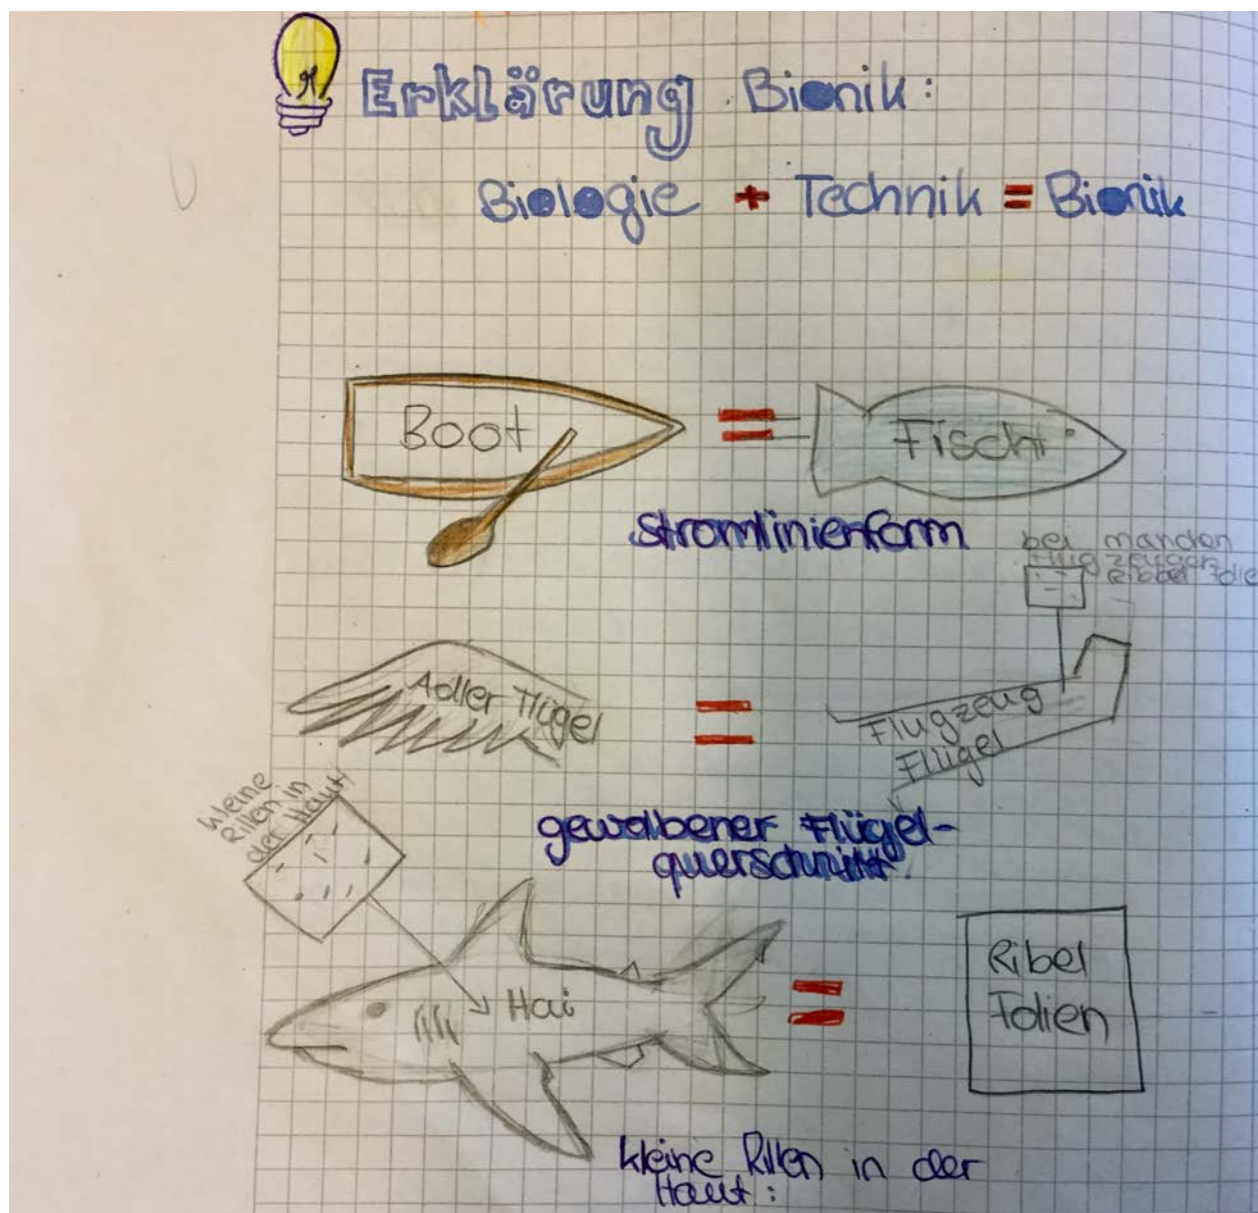 Erklärung Bionik:
Biologie + Technik = Bionik
Boot = Fisch
Stromlinienform
bei manchen
Flugzeugen
Ribbel Folie
Adler Flügel = Flugzeug
Flügel
gewolbener Flügel-
querschnitt.
kleine
Rillen in
der Haut
Hai = Ribel
Folien
kleine Rillen in der
Haut: